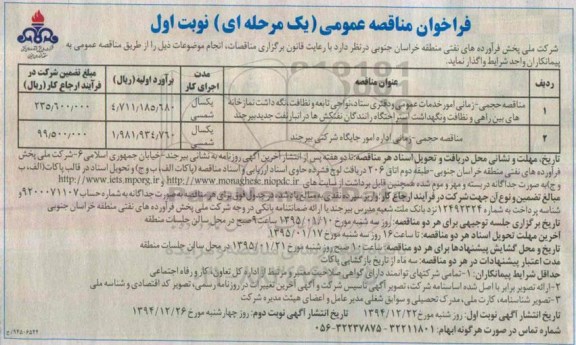 فراخوان مناقصه عمومی (یک مرحله ای) نوبت اول
شرکت ملی پخش فرآورده های نفتی منطقه خراسان جنوبی درنظر دارد با رعایت قانون برگزاری مناقصات، انجام موضوعات ذیل را از طریق مناقصه عمومی به
پیمانکاران واجد شرایط واگذار نماید.
ردیف عنوان مناقصه مدت اجرای کار برآورد اولیه (ریال) مبلغ تضمین شرکت در فرآیند ارجاع کار (ریال)
۱ مناقصه حجمی-زمانی امور خدمات عمومی ودفتری ستاد،نواحی تابعه و نظافت،نگه داشت نمازخانه
های بین راهی و نظافت ونگهداشت استراحتگاه رانندگان نفتکش ها در انبار نفت جدید بیرجند یکسال شمسی ۴,۷۱۱,۱۸۵,۶۸۰ ۲۳۵,۶۰۰,۰۰۰
۲ مناقصه حجمی-زمانی اداره امور جایگاه شرکتی بیرجند یکسال شمسی ۱,۹۸۱,۹۳۴,۷۶۰ ۹۹,۵۰۰,۰۰۰
تاریخ، مهلت و نشانی محل دریافت و تحویل اسناد هر مناقصه: تا دو هفته پس از انتشار آخرین آگهی روزنامه به نشانی بیرجند-خیابان جمهوری اسلامی ۶-شرکت ملی پخش
فرآورده های نفتی منطقه خراسان جنوبی -طبقه دوم اتاق ۲۰۶ دریافت لوح فشرده حاوی اسناد ارزیابی و اسناد مناقصه (پاکات الف، ب و ج) و تحویل اسناد در قالب پاکات(الف، ب
و ج)به صورت جداگانه دربسته و مهر و موم شده همچنین قابل برداشت از سایت های http://www.monaghese.niopdc.ir و http://iets.mporg.ir
مبالغ تضمین و نوع آن جهت شرکت در فرآیند ارجاع کار:
شناسه پرداخت به شماره ۱۲۴۹۲۳۲۴ نزد بانک ملت شعبه مدرس بیرجند یا ارائه ضمانتنامه بانکی در وجه شرکت ملی پخش فرآورده های نفتی منطقه خراسان جنوبی
تاریخ برگزاری جلسه توجیهی برای هر دو مناقصه: روز سه شنبه مورخ ۱۳۹۵/۰۱/۱۰ ساعت ۹ صبح در محل سالن جلسات منطقه
آخرین مهلت تحویل اسناد هر دو مناقصه: تا ساعت ۱۶ روز سه شنبه مورخ ۱۳۹۵/۰۱/۱۷
تاریخ و محل گشایش پیشنهادها برای هر دو مناقصه: ساعت ۱۰ صبح روز شنبه مورخ ۱۳۹۵/۰۱/۲۱ در محل سالن جلسات منطقه
مدت اعتبار پیشنهادات در هر دو مناقصه: سه ماه از تاریخ بازگشایی پاکات
حداقل شرایط پیمانکاران: ۱-تمامی شرکتهای توانمند دارای گواهی صلاحیت معتبر و مرتبط از اداره کل تعاون، کار و رفاه اجتماعی
۲-ارائه تصویر برابر با اصل شده اساسنامه شرکت، تصویر آگهی تأسیس شرکت و آگهی آخرین تغییرات در روزنامه رسمی، تصویر کد اقتصادی و شناسه ملی
۳-تصویر شناسنامه، کارت ملی، مدرک تحصیلی و سوابق شغلی مدیر عامل و اعضای هیئت مدیره شرکت
تاریخ انتشار آگهی نوبت اول: روز سه شنبه مورخ ۱۳۹۴/۱۲/۲۲ تاریخ انتشار آگهی نوبت دوم: روز چهارشنبه مورخ ۱۳۹۴/۱۲/۲۶
شماره تماس در صورت هرگونه ابهام: ۳۲۲۱۱۸۰۱ - ۳۲۲۳۷۸۷۵-۰۵۶